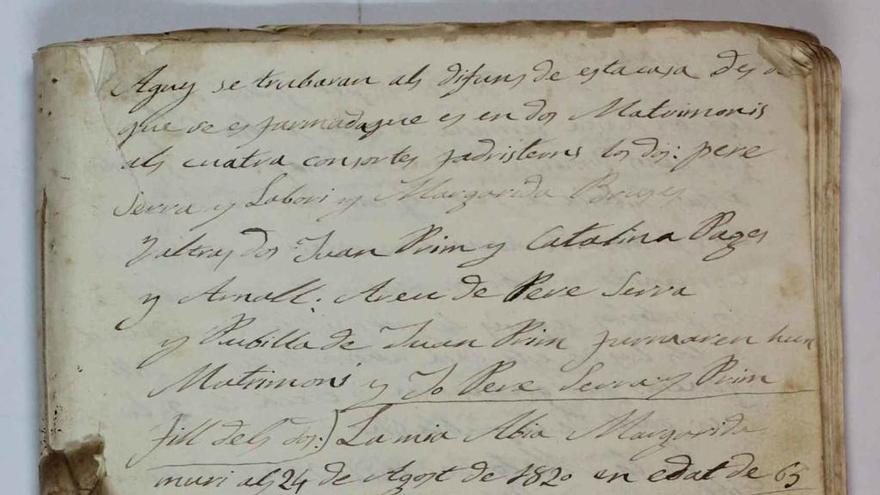 Aquy se trubaran als difuns de esta casa des de
que se es furmada que es en dos Matrimonis
als cuatra consortes padristems los dos: pere
Serra y Labori y Margarida Bruges
Y altras dos Juan Prim y Catalina Pages
y Amall. Areu de Pere Serra
y Pubilla de Juan Prim furmaren hun
Matrimoni y Jo Pere Serra y Prim
fill dels dos:) La mia Abia Margarida
muri als 24 de Agost de 1820 en edat de 65